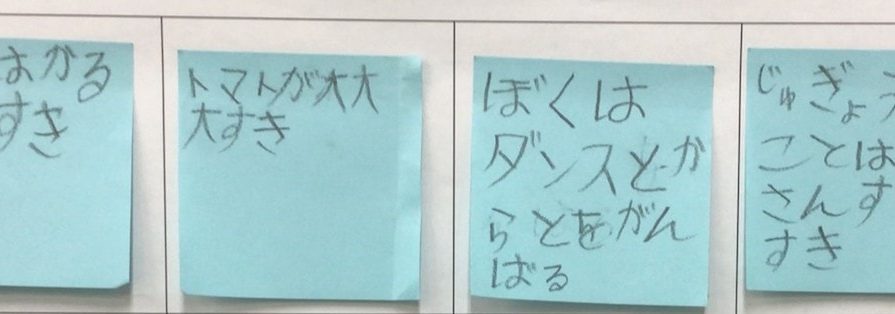 はかる
すき
トマトが大大
大すき
ぼくは
ダンスとか
らとをがん
ばる
じゅぎょう
ことは
さんす
すき